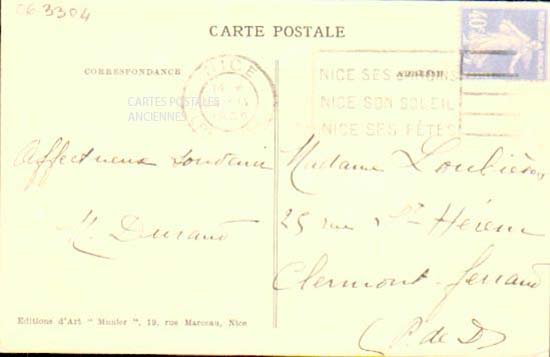 06 3304
CARTE POSTALE
CORRESPONDANCE
ADRESSE
NICE
40c
NICE SES
NICE SON SOLEIL
NICE SES FÊTES
CARTES POSTALES
ANCIENNES
Affectueux souvenir
M. Durand
Madame Loubière
25 rue St Hérem
Clermont-Ferrand
(P. de D.)
Editions d'Art " Munier ", 19, rue Marceau, Nice